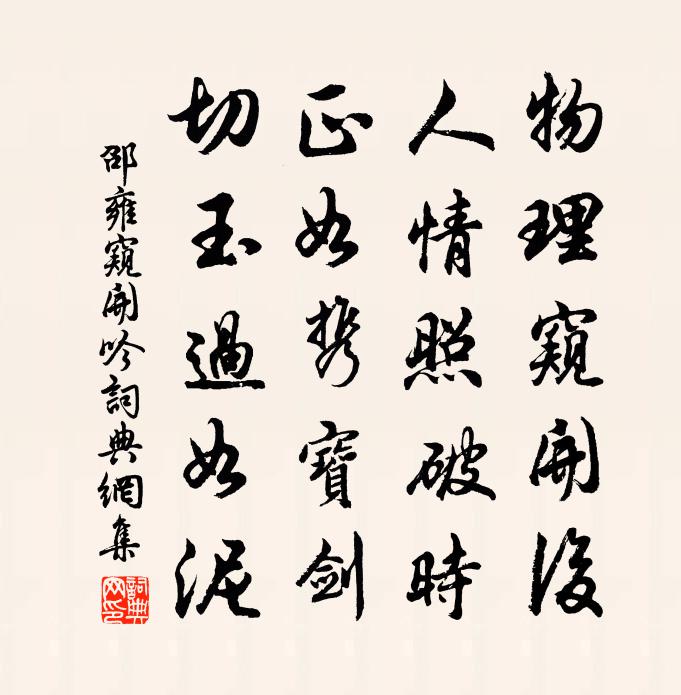 物理窺開後
人情照破時
正如攜寶劍
切玉過如泥
邵雍窺開吟詞典網集
詞典網印